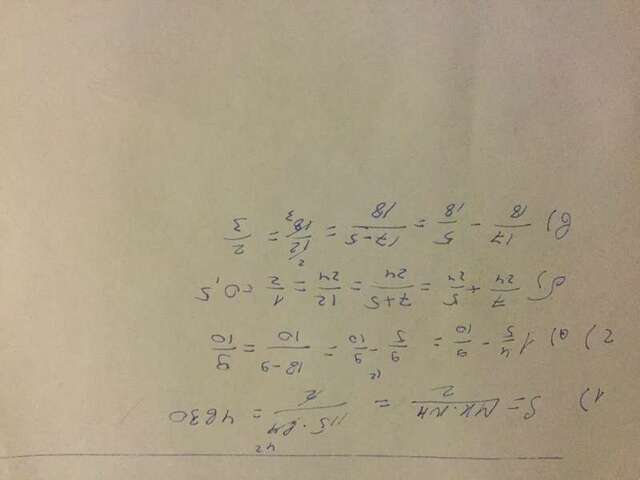 1) S = MK·NH/2 = 115·84/2 42 = 4830
2) а) 1 4/5 - 9/10 = 9/5 - 9/10 = 18-9/10 = 9/10
б) 7/24 + 5/24 = 7+5/24 = 12/24 = 1/2 = 0,5
в) 17/18 - 5/18 = 17-5/18 = 12/18 2 3 = 2/3